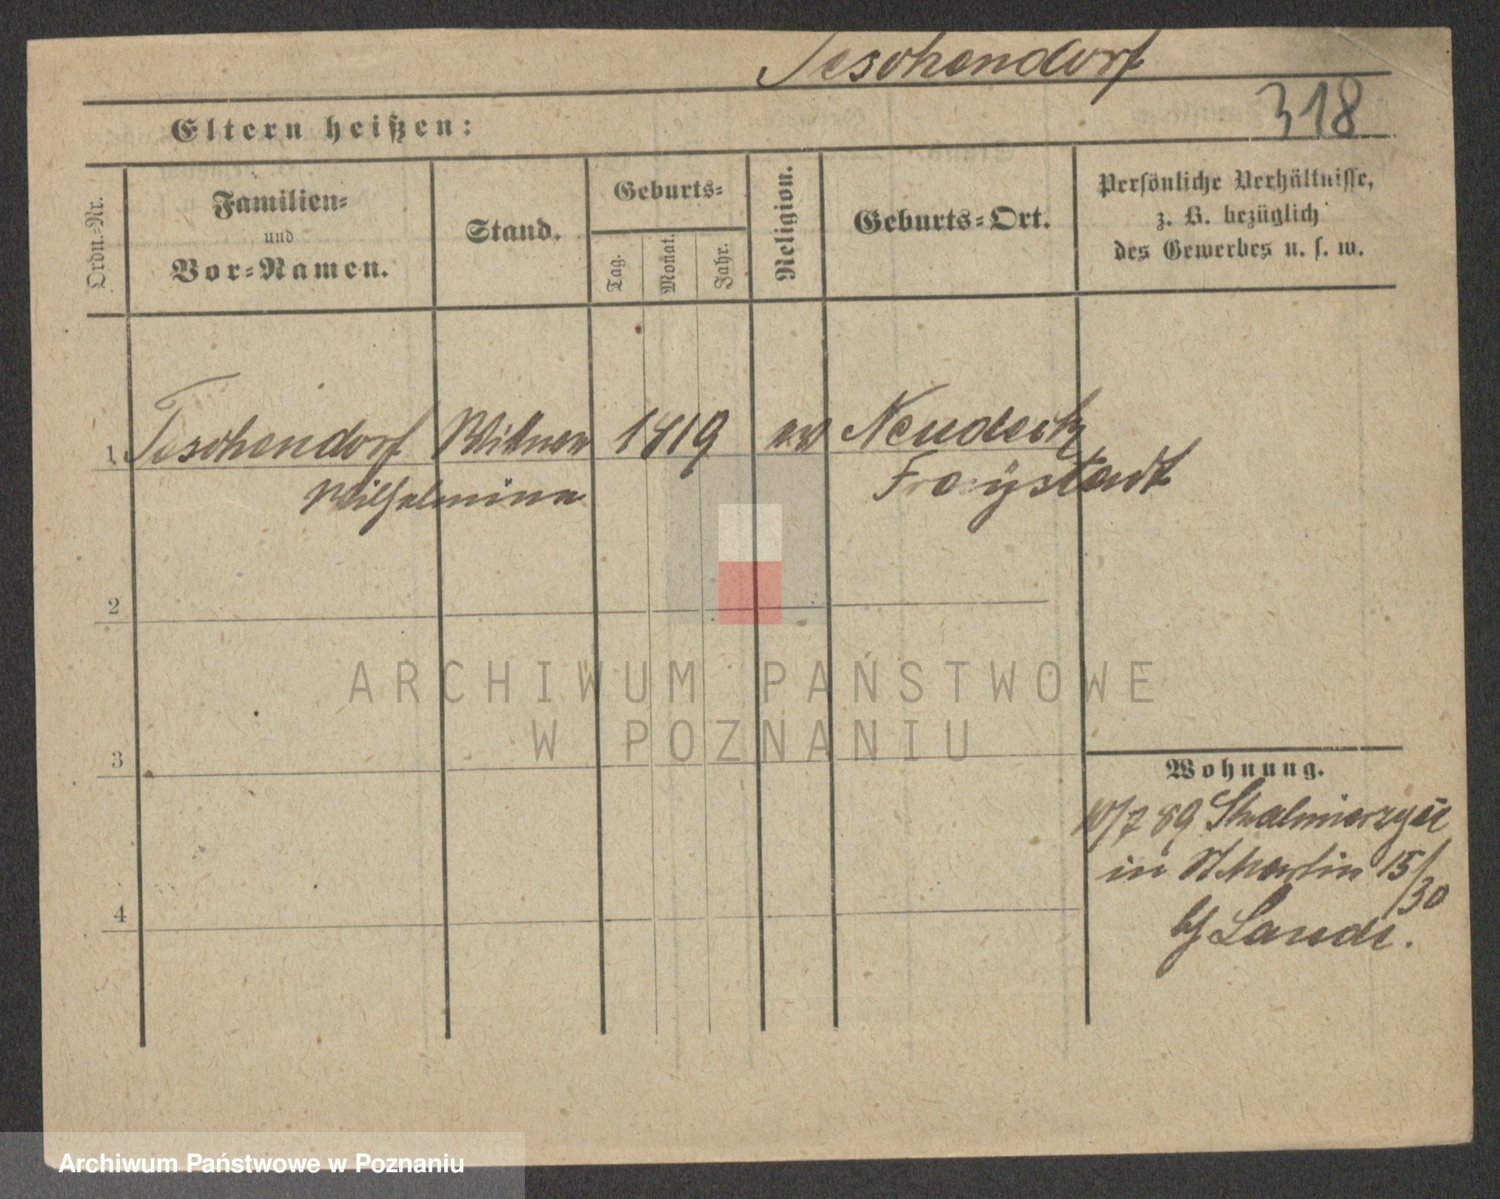 Teschendorf
318
Eltern heißen:
Ordn.-Nr.
Familien-
und
Vor-Namen.
Stand.
Geburts-
Tag.
Monat.
Jahr.
Religion.
Geburts-Ort.
Persönliche Verhältnisse,
z. B. bezüglich
des Gewerbes u. s. w.
1 Teschendorf 1819 Neudeck
Wilhelmina
2
3
4
Wohnung.
10/7 89
in St Martin 15/30
ARCHIWUM PAŃSTWOWE
W POZNANIU
Archiwum Państwowe w Poznaniu